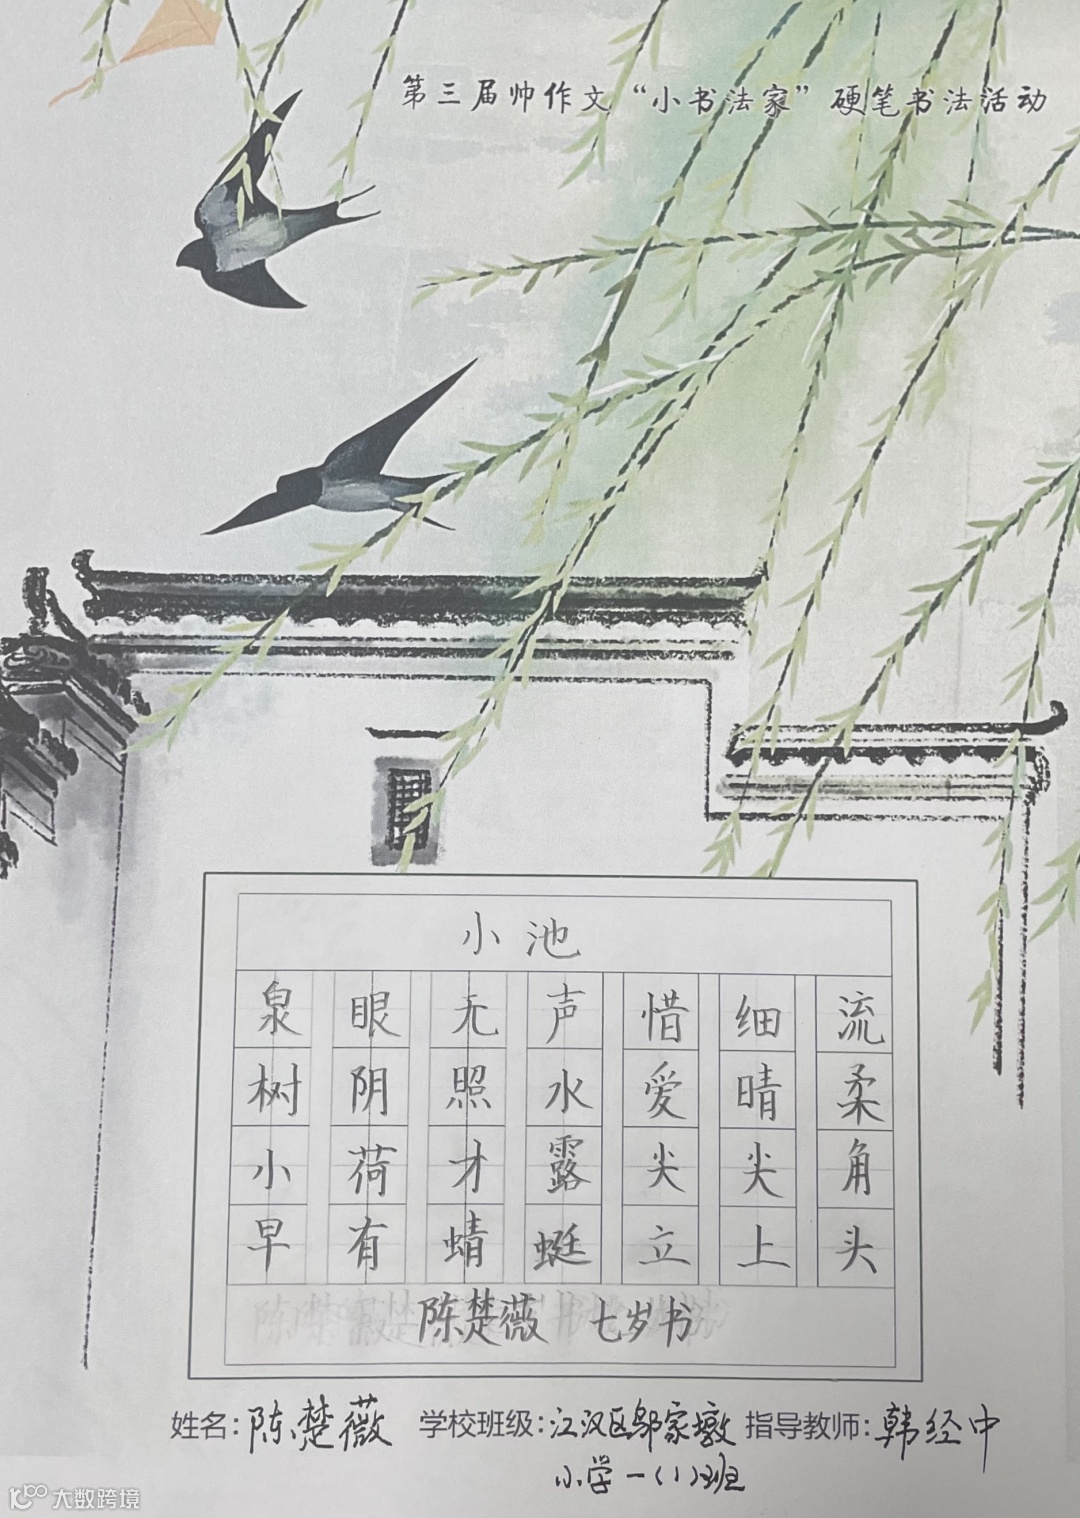 第三届帅作文“小书法家”硬笔书法活动
小池
泉眼无声惜细流
树阴照水爱晴柔
小荷才露尖尖角
早有蜻蜓立上头
陈楚薇 七岁书
姓名:陈楚薇 学校班级:江汉区邬家墩 指导教师:韩经中
小学一(1)班
大数跨境